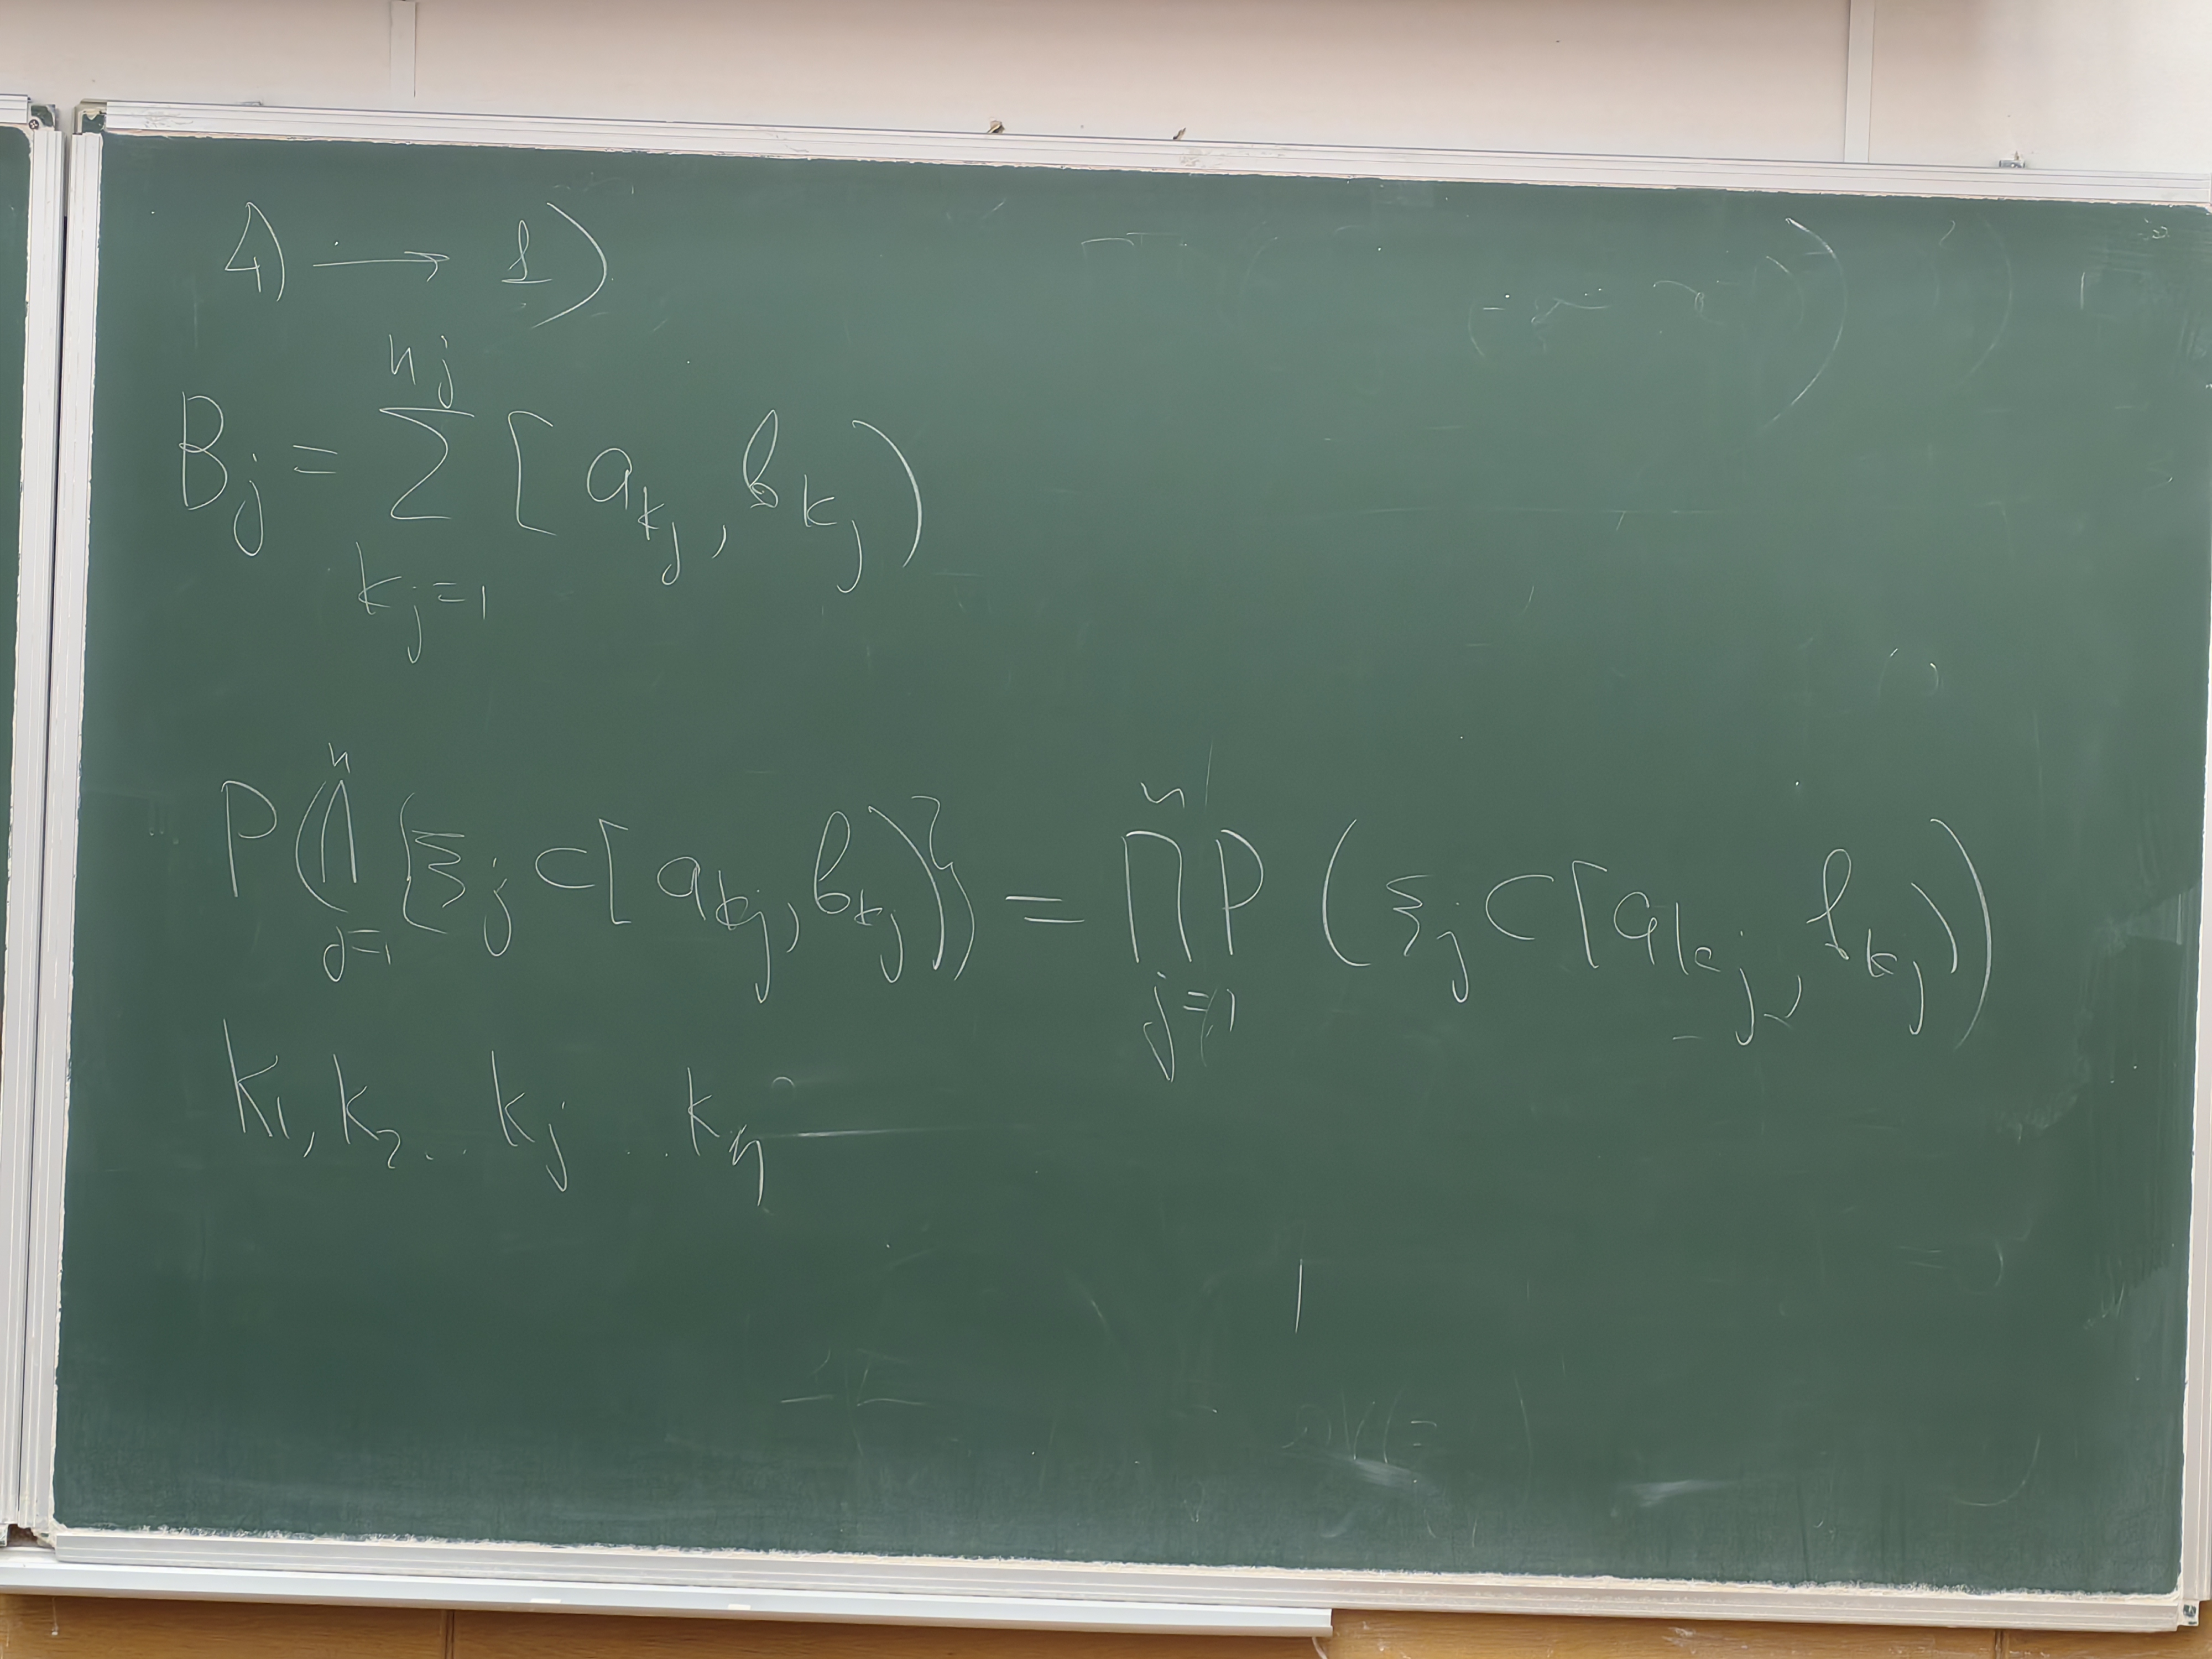 4) → 1)
B_j = ∑_{k_j=1}^{n_j} [a_{k_j}, b_{k_j})
P(⋂_{j=1}^{n} {ξ_j ⊂ [a_{k_j}, b_{k_j})}) = ∏_{j=1}^{n} P(ξ_j ⊂ [a_{k_j}, b_{k_j}))
k_1, k_2 .. k_j .. k_n